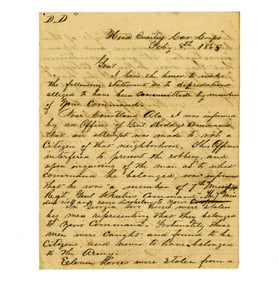 "D.D"
Head Quarters Cav Corps
Feby 8th 1865
Genl
I have the honor to make
the following statement as to depredations
alleged to have been committed by members
of Your Command.
Near Courtland Ala, it was informed
by an Officer of Genl Roddys Command
that an attempt was made to rob a
Citizen of that neighborhood. This Officer
interfered to prevent the robbery, and
upon inquiring of the man as to what
command he belonged, was informed
that he was a member of 7th
Regt, Genl Command. The
did not
In Georgia two were stolen
by men representing that they belonged
to Your Command. Fortunately these
men were caught and found to be
Citizens, and never to have belonged
to the Army.
Eleven Horses were stolen from a